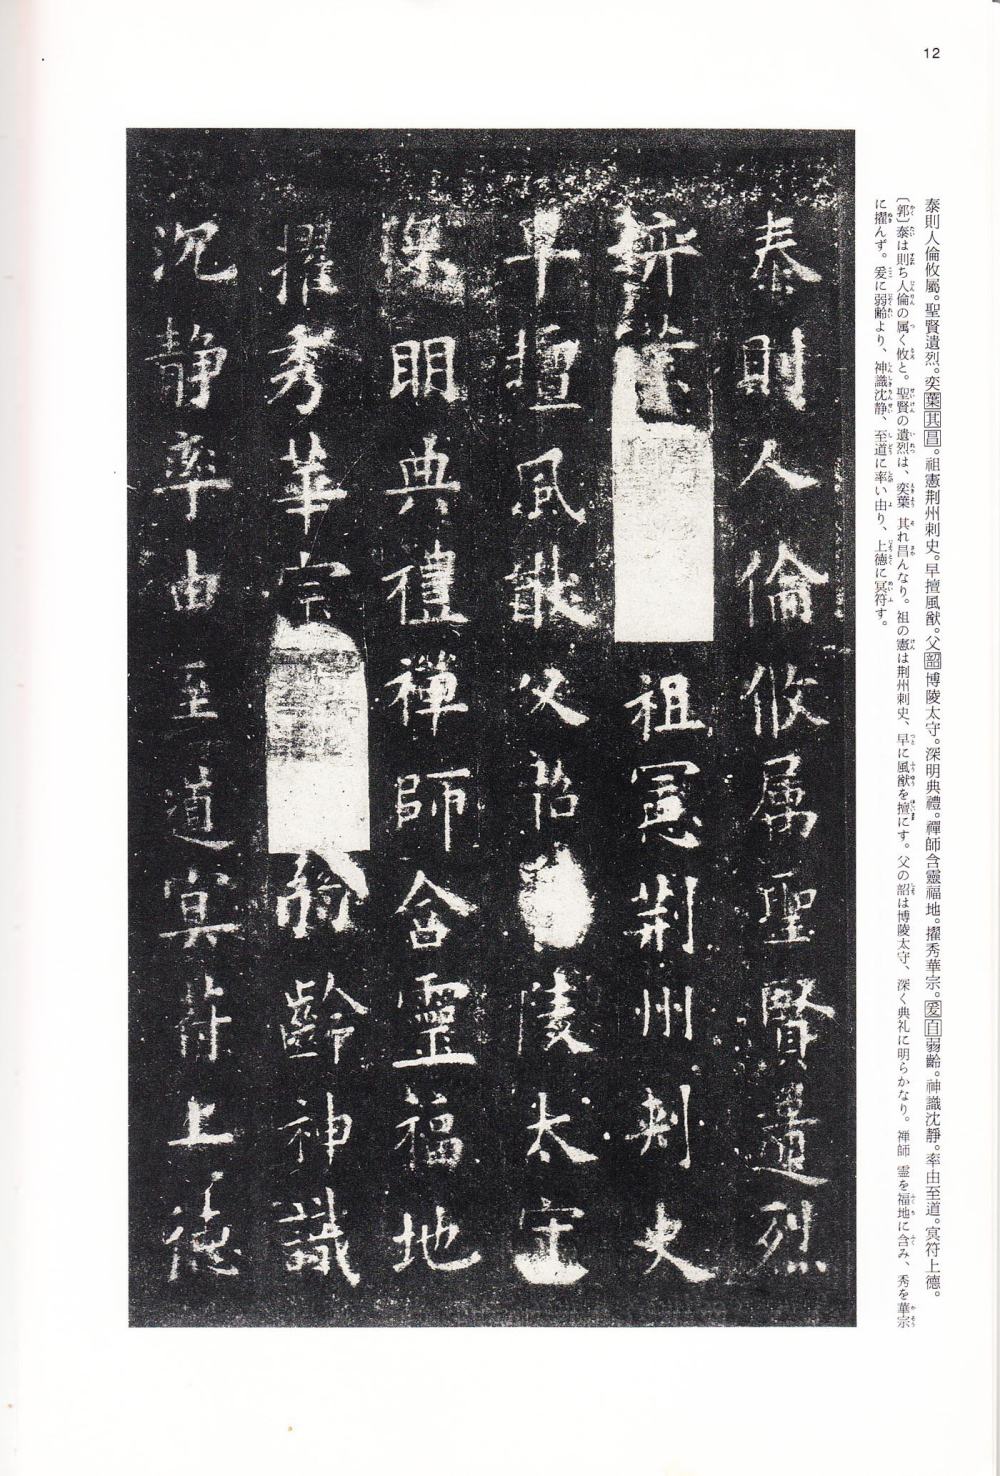 12
泰則人倫攸屬。聖賢遺烈。奕葉其昌。祖憲荆州刺史。早擅風猷。父韶博陵太守。深明典禮。禪師含靈福地。擢秀華宗。爰自弱齡。神識沈靜。率由至道。冥符上德。
〔郭〕泰は則ち人倫の属く攸と。聖賢の遺烈は、奕葉 其れ昌んなり。祖の憲は荆州刺史、早に風猷を擅にす。父の韶は博陵太守、深く典礼に明らかなり。禅師 霊を福地に含み、秀を華宗
に擢んず。爰に弱齢より、神識沈静、至道に率い由り、上徳に冥符す。
泰則人倫攸属聖賢遺烈
弈葉祖憲荆州刺史
早擅風猷父韶陵太守
深明典禮禪師含靈福地
擢秀華宗弱齡神識
沉静率由至道冥符上德